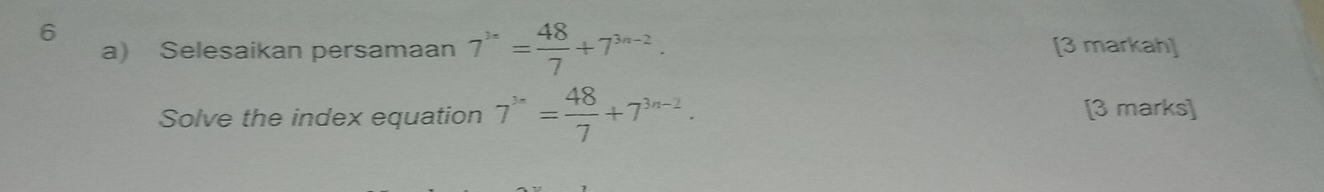 6
a) Selesaikan persamaan 7^{3n} = \frac{48}{7} + 7^{3n-2}. [3 markah]
Solve the index equation 7^{3n} = \frac{48}{7} + 7^{3n-2}. [3 marks]